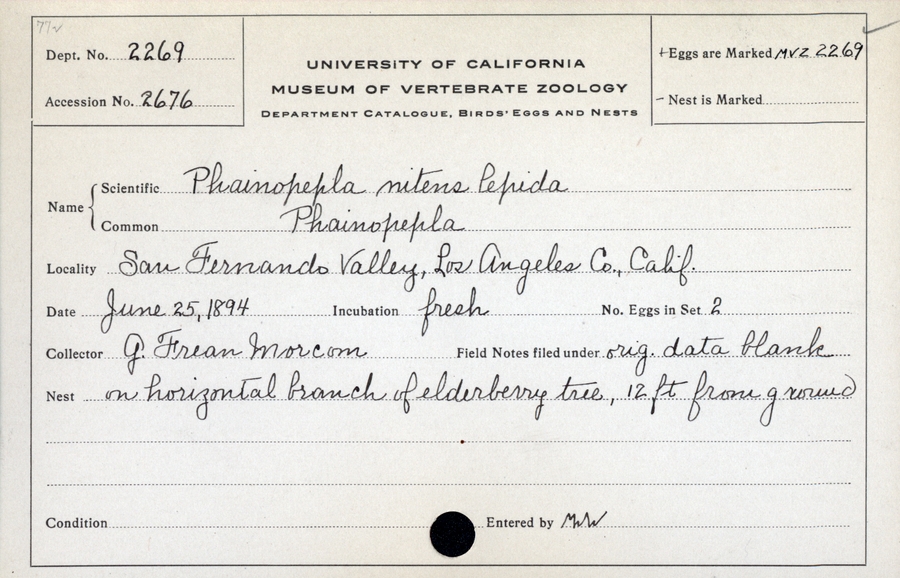 77✓
Dept. No. 2269
Accession No. 2676
UNIVERSITY OF CALIFORNIA
MUSEUM OF VERTEBRATE ZOOLOGY
DEPARTMENT CATALOGUE, BIRDS' EGGS AND NESTS
+ Eggs are Marked MVZ 2269
- Nest is Marked
Name
Scientific Phainopepla nitens lepida
Common Phainopepla
Locality San Fernando Valley, Los Angeles Co., Calif.
Date June 25, 1894 Incubation fresh No. Eggs in Set 2
Collector G. Frean Morcom Field Notes filed under orig. data blank
Nest on horizontal branch of elderberry tree, 12 ft from ground
Condition Entered by